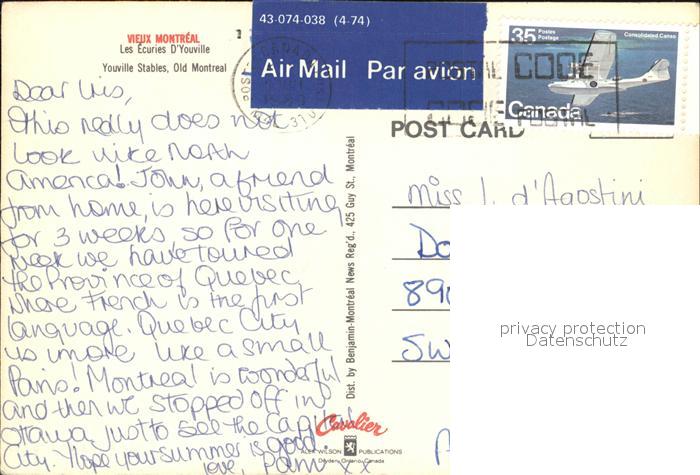 43-074-038 (4-74)
Air Mail Par avion
35 Postes Postage
Consolidated Canso
Canada
POSTAL CODE
CODE POSTAL
VIEUX MONTRÉAL
Les Écuries D'Youville
Youville Stables, Old Montreal
POST CARD
Dear
this really does not
look like North
America! John, a friend
from home, is here visiting
for 3 weeks, so for one
week we have toured
the Province of Quebec,
where French is the first
language. Quebec City
is more like a small
Paris! Montreal is wonderful
and then we stopped off in
Ottawa just to see the Capital
City. Hope your summer is good.
love, Pam x
Dist. by Benjamin-Montréal News Reg'd., 425 Guy St., Montréal
Cavalier
ALEX WILSON PUBLICATIONS
Dryden, Ontario, Canada
Miss I. d'Agostini
Do
890
SW
privacy protection
Datenschutz